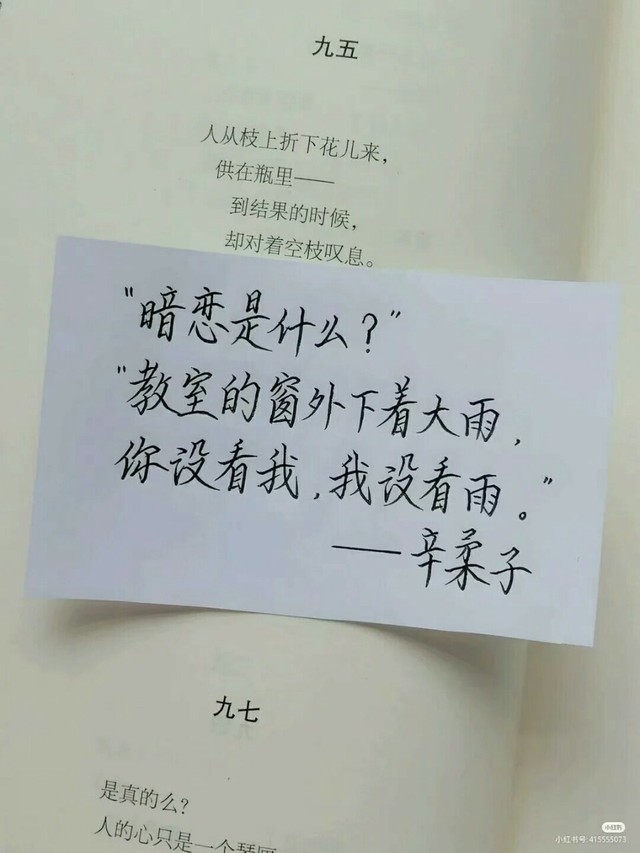 九五
人从枝上折下花儿来,
供在瓶里——
到结果的时候,
却对着空枝叹息。
"暗恋是什么?"
"教室的窗外下着大雨,
你没看我,我没看雨。"
——辛柔子
九七
是真的么?
人的心只是一个
小红书
小红书号: 415555073